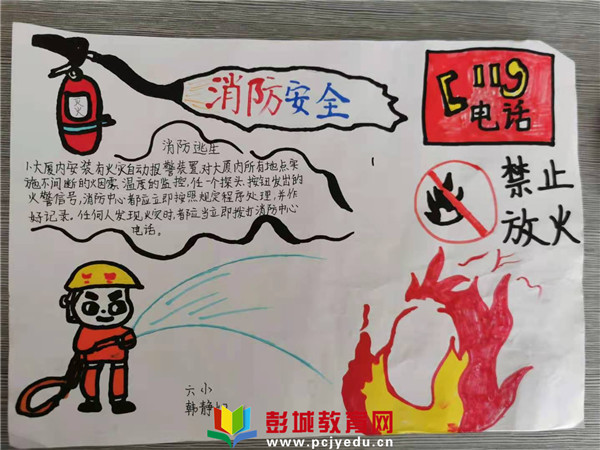 消防安全
119
电话
消防逃生
1.大厦内安装有火灾自动报警装置,对大厦内所有地点实
施不间断的烟雾、温度的监控,任一个探头、按钮发出的
火警信号,消防中心都应立即按照规定程序处理,并作
好记录。任何人发现火灾时,都应当立即拨打消防中心
电话。
禁止
放火
六小
韩静
彭城教育网
www.pcjyedu.cn